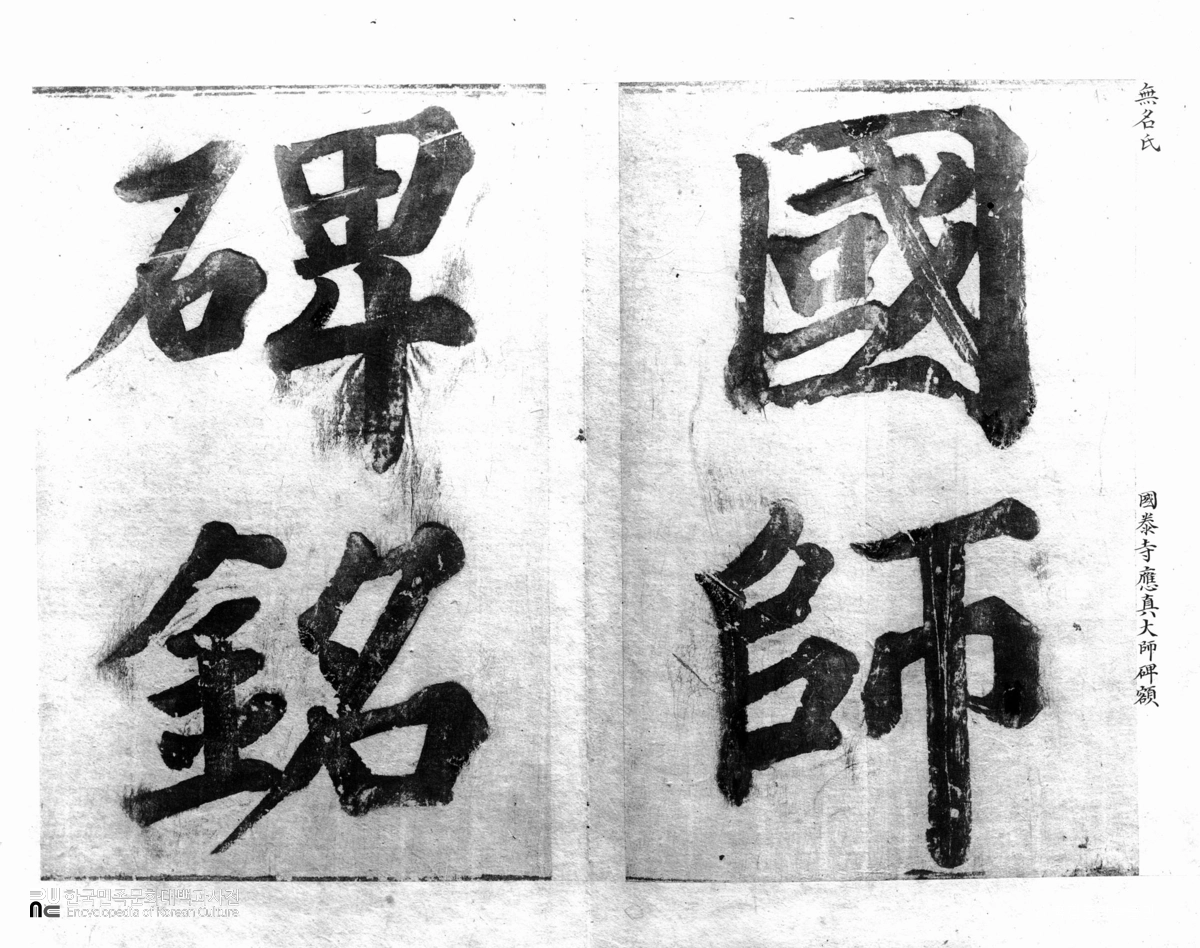 無名氏
國泰寺應真大師碑額
國師
碑銘
한국민족문화대백과사전
Encyclopedia of Korean Culture